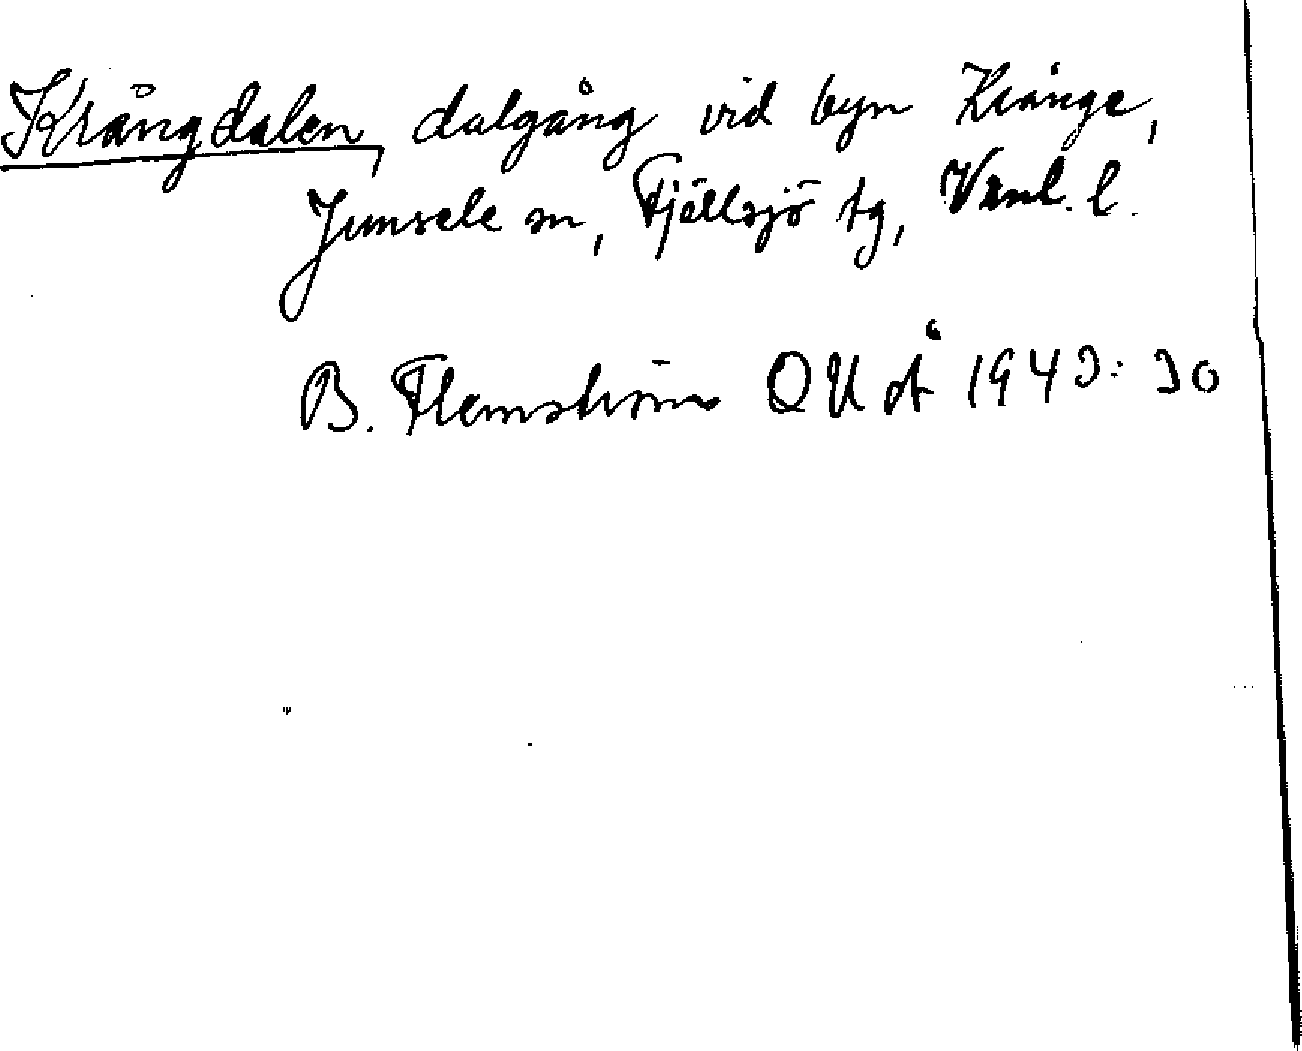 Krångdalen, dalgång vid byn Krånge,
Junsele sn, Fjällsjö tg, Vrnl. l.
B. Flemström OUÅ 1943: 30